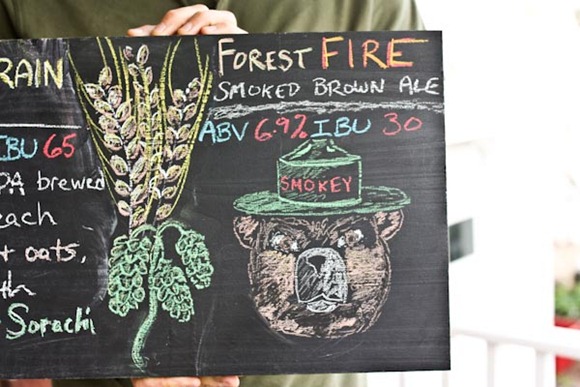 RAIN
IBU 65
PA brewed
each
+ oats,
th
Sorachi
FOREST FIRE
SMOKED BROWN ALE
ABV 6.9% IBU 30
SMOKEY